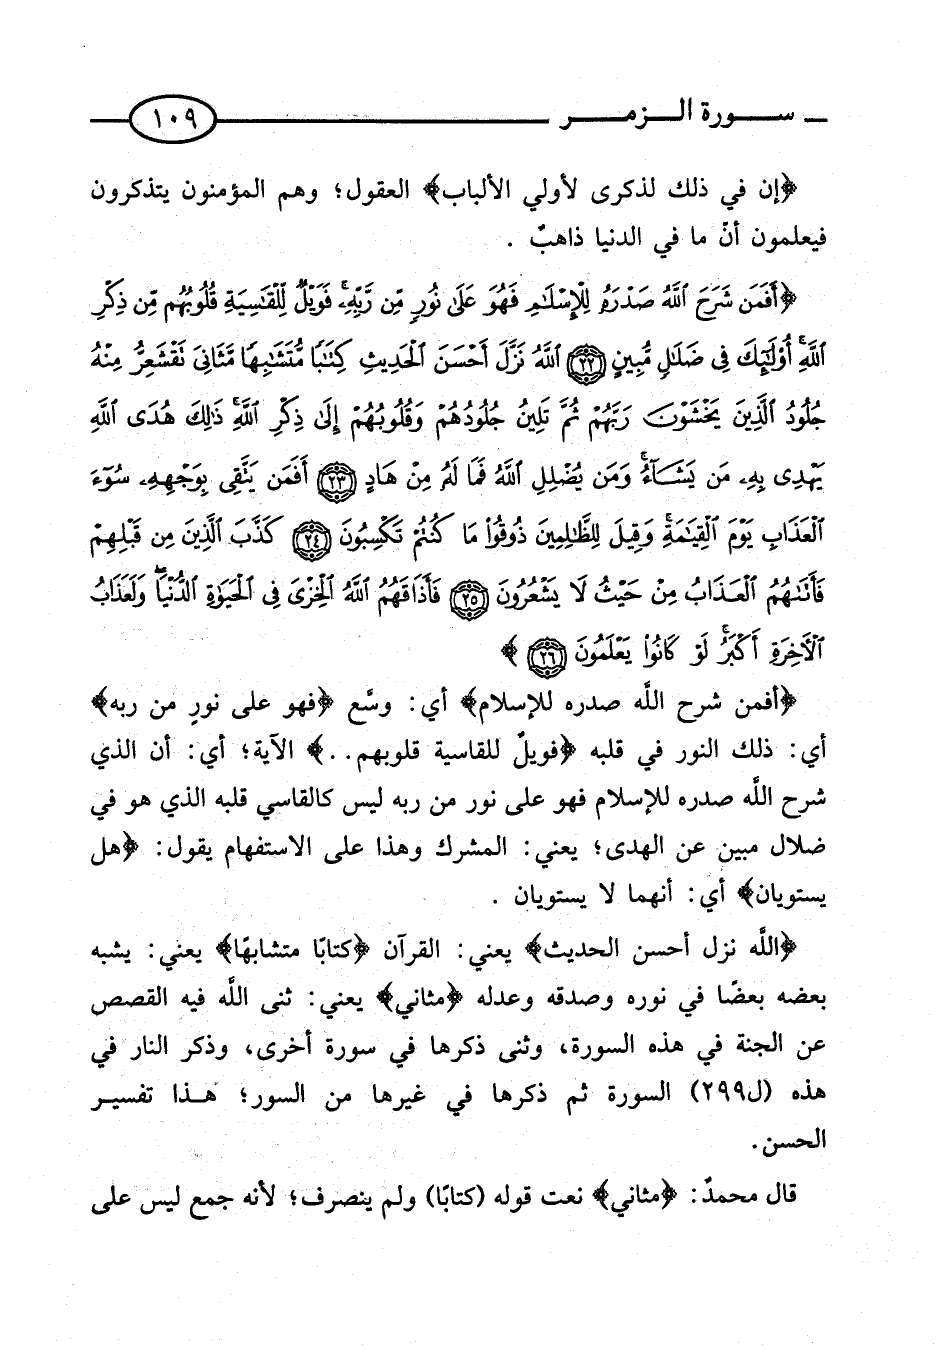 سورة الزمر ١٠٩
﴿إن في ذلك لذكرى لأولي الألباب﴾ العقول؛ وهم المؤمنون يتذكرون
فيعلمون أنّ ما في الدنيا ذاهبٌ .
﴿أَفَمَن شَرَحَ ٱللَّهُ صَدْرَهُۥ لِلْإِسْلَٰمِ فَهُوَ عَلَىٰ نُورٍ مِّن رَّبِّهِۦ ۚ فَوَيْلٌ لِّلْقَٰسِيَةِ قُلُوبُهُم مِّن ذِكْرِ
ٱللَّهِ ۚ أُو۟لَٰٓئِكَ فِى ضَلَٰلٍ مُّبِينٍ ٢٢ ٱللَّهُ نَزَّلَ أَحْسَنَ ٱلْحَدِيثِ كِتَٰبًا مُّتَشَٰبِهًا مَّثَانِىَ تَقْشَعِرُّ مِنْهُ
جُلُودُ ٱلَّذِينَ يَخْشَوْنَ رَبَّهُمْ ثُمَّ تَلِينُ جُلُودُهُمْ وَقُلُوبُهُمْ إِلَىٰ ذِكْرِ ٱللَّهِ ۚ ذَٰلِكَ هُدَى ٱللَّهِ
يَهْدِى بِهِۦ مَن يَشَآءُ ۚ وَمَن يُضْلِلِ ٱللَّهُ فَمَا لَهُۥ مِنْ هَادٍ ٢٣ أَفَمَن يَتَّقِى بِوَجْهِهِۦ سُوٓءَ
ٱلْعَذَابِ يَوْمَ ٱلْقِيَٰمَةِ ۚ وَقِيلَ لِلظَّٰلِمِينَ ذُوقُوا۟ مَا كُنتُمْ تَكْسِبُونَ ٢٤ كَذَّبَ ٱلَّذِينَ مِن قَبْلِهِمْ
فَأَتَىٰهُمُ ٱلْعَذَابُ مِنْ حَيْثُ لَا يَشْعُرُونَ ٢٥ فَأَذَاقَهُمُ ٱللَّهُ ٱلْخِزْىَ فِى ٱلْحَيَوٰةِ ٱلدُّنْيَا ۖ وَلَعَذَابُ
ٱلْءَاخِرَةِ أَكْبَرُ ۚ لَوْ كَانُوا۟ يَعْلَمُونَ ٢٦ ﴾
﴿أفمن شرح اللَّه صدره للإسلام﴾ أي: وسَّع ﴿فهو على نورٍ من ربه﴾
أي: ذلك النور في قلبه ﴿فويلٌ للقاسية قلوبهم..﴾ الآية؛ أي: أن الذي
شرح اللَّه صدره للإسلام فهو على نور من ربه ليس كالقاسي قلبه الذي هو في
ضلال مبين عن الهدى؛ يعني: المشرك وهذا على الاستفهام يقول: ﴿هل
يستويان﴾ أي: أنهما لا يستويان .
﴿اللَّه نزل أحسن الحديث﴾ يعني: القرآن ﴿كتابًا متشابهًا﴾ يعني: يشبه
بعضه بعضًا في نوره وصدقه وعدله ﴿مثاني﴾ يعني: ثنى اللَّه فيه القصص
عن الجنة في هذه السورة، وثنى ذكرها في سورة أخرى، وذكر النار في
هذه (ل٢٩٩) السورة ثم ذكرها في غيرها من السور؛ هـذا تفسيـر
الحسن.
قال محمدٌ: ﴿مثاني﴾ نعت قوله (كتابًا) ولم ينصرف؛ لأنه جمع ليس على